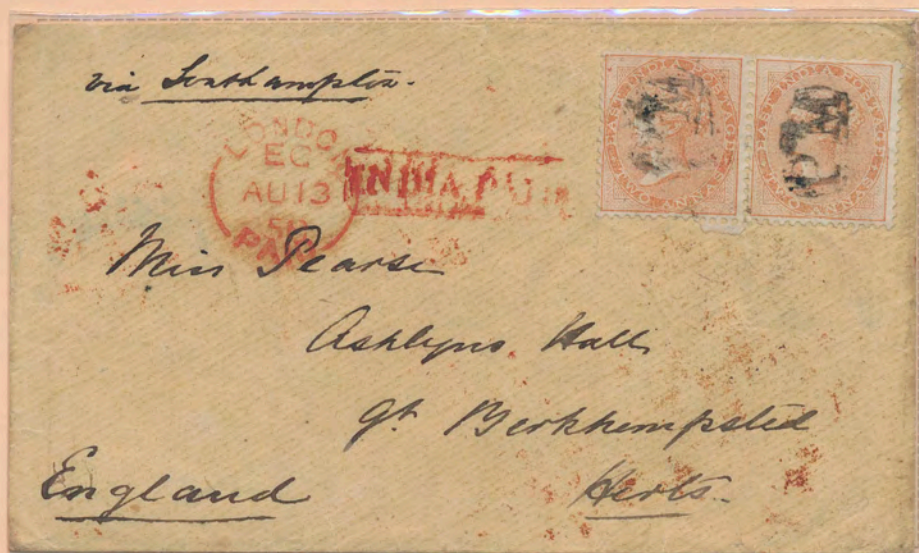 via Southampton.
LONDON
EC
AU 13
PAID
INDIA PAID
EAST INDIA POSTAGE
TWO ANNAS
EAST INDIA POSTAGE
TWO ANNAS
Miss Pearse
Ashlyns Hall
Gt. Berkhempsted
Herts.
England